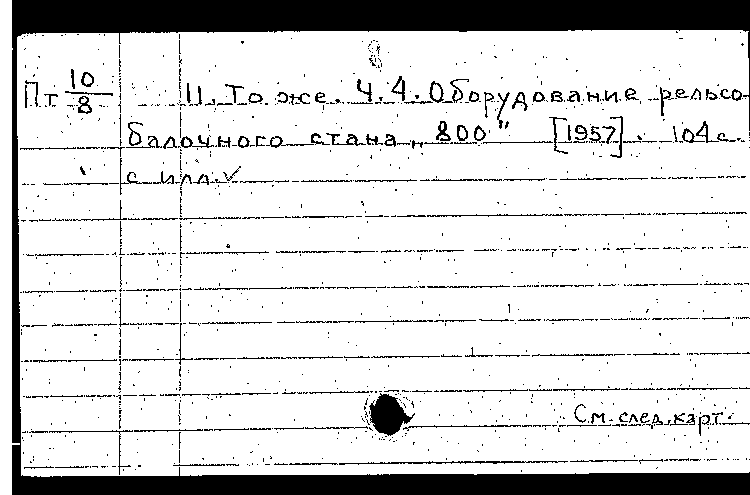 Пт 10/8 11. То же. Ч.4. Оборудование рельсо-
балочного стана „800" [1957]. 104 с.
с илл. ✓
См. след. карт.